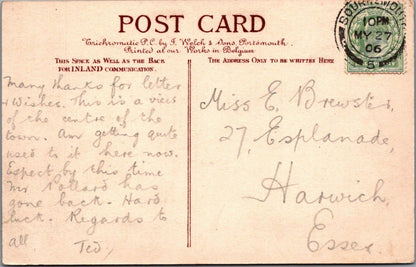 POST CARD
Trichromatic P.C. by F. Welch & Sons, Portsmouth.
Printed at our Works in Belgium
THIS SPACE AS WELL AS THE BACK
FOR INLAND COMMUNICATION.
THE ADDRESS ONLY TO BE WRITTEN HERE.
BOURNEMOUTH
10PM
MY 27
06
S
Many thanks for letter
& wishes. This is a view
of the centre of the
town. Am getting quite
used to it here now.
Expect by this time
Mr Pollard has
gone back. Hard
luck. Regards to
all Ted
Miss E. Brewster,
27, Esplanade,
Harwich,
Essex.